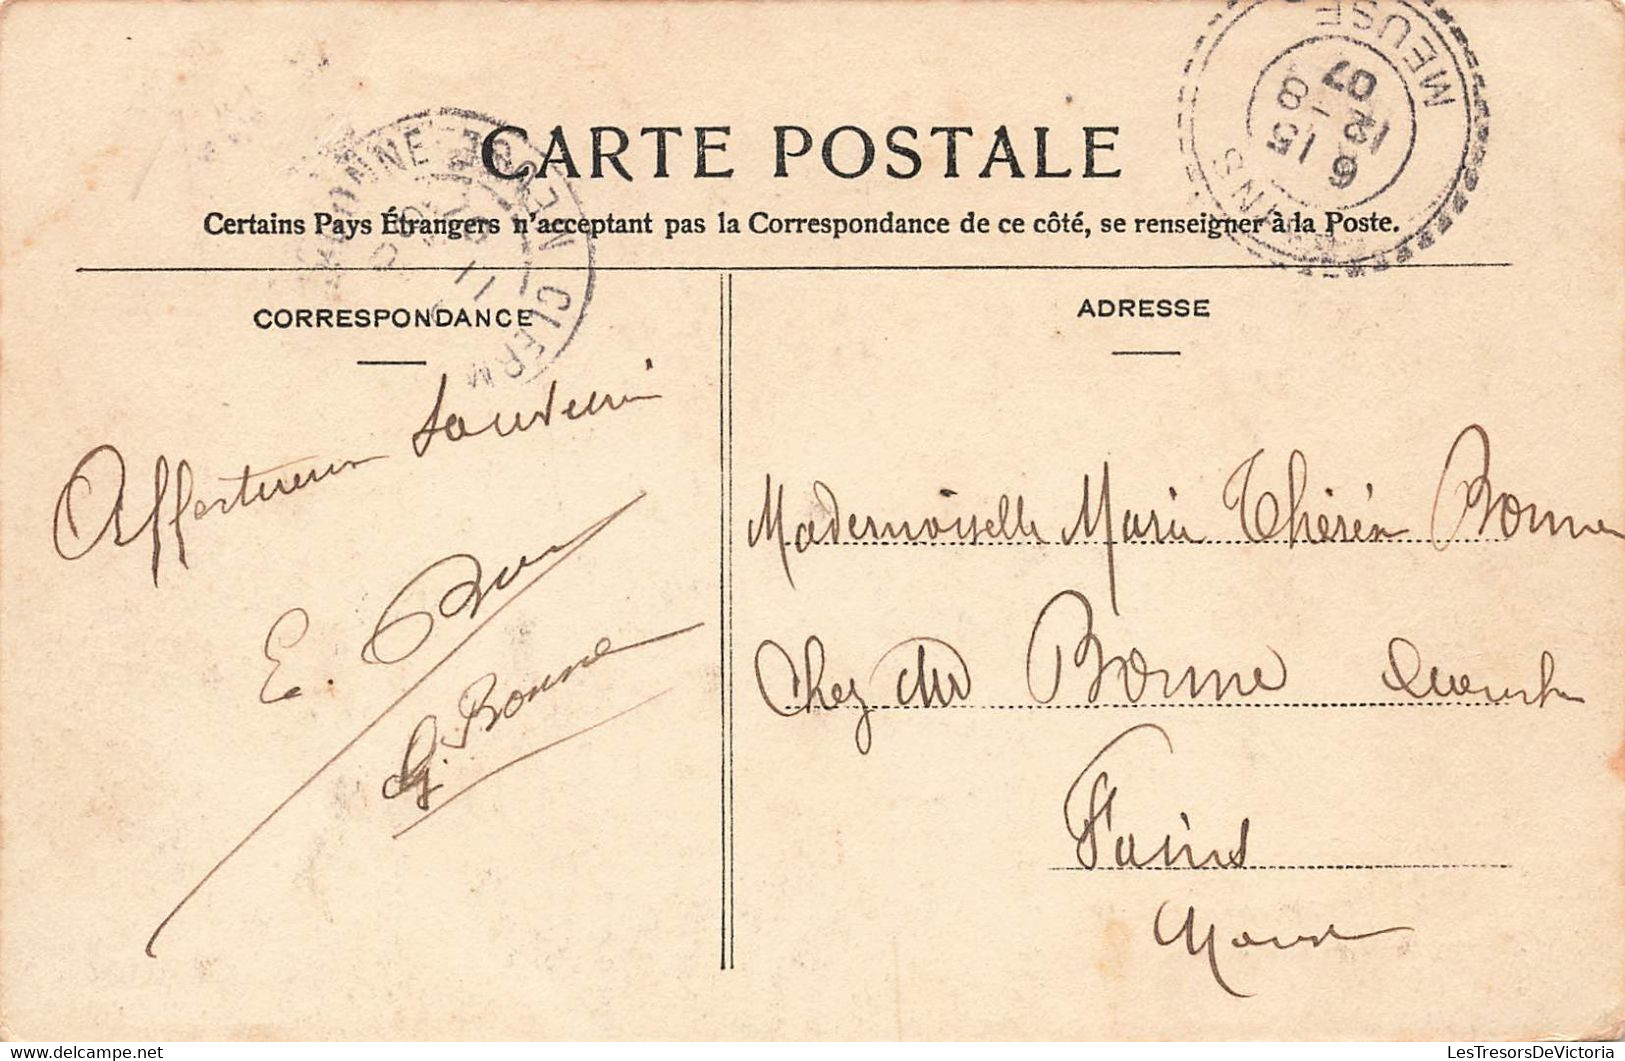 CARTE POSTALE
Certains Pays Étrangers n'acceptant pas la Correspondance de ce côté, se renseigner à la Poste.
CORRESPONDANCE
ADRESSE
Affectueux Souvenir
E.
G. Bonne
Mademoiselle Marie Thérèse Bonne
Chez Mr Bonne
Fains
Meuse
MEUSE
15
6
12
07
CLERM
MEUSE
11
LesTresorsDeVictoria